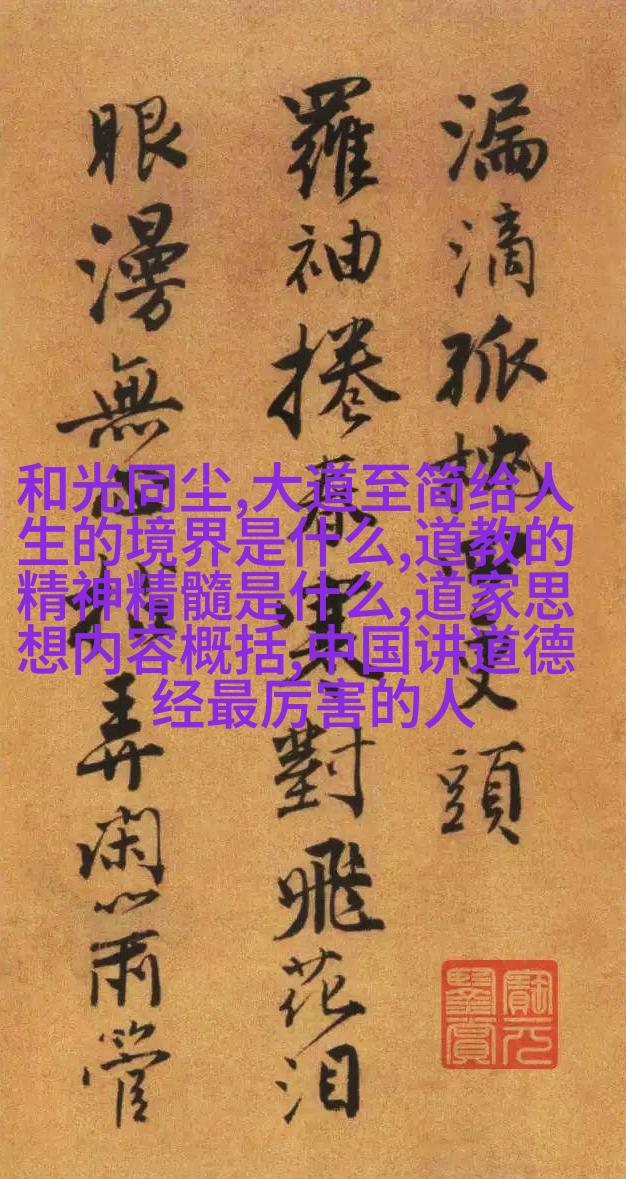 和光同尘,大道至简给人
生的境界是什么,道教的
精神精髓是什么,道家思
想内容概括,中国讲道德
经最厉害的人
漏滴孤頭
羅袖捲春寒對飛花泪
眼漫無弄閑心雨管